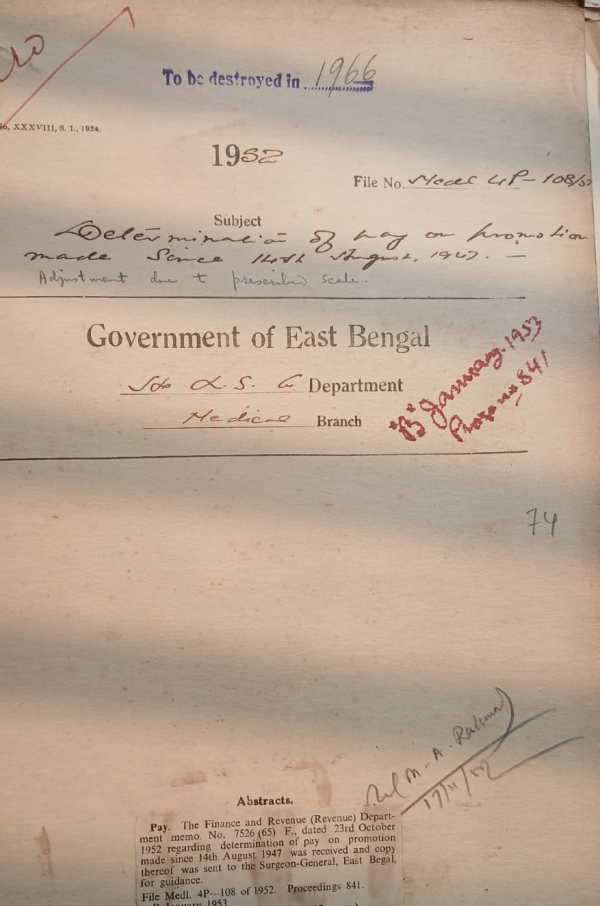 To be destroyed in 1966
XXXVIII, S. 1., 1924.
1952
File No. Medl 4P-108/52
Subject
Determination of pay on promotion
made since 14th August, 1947. —
Adjustment due to prescribed scale.
Government of East Bengal
L. S. G Department
Medical Branch
"B" January. 1953
Progs no 841
74
M. A. Rahman
17/11/52
Abstracts.
Pay. The Finance and Revenue (Revenue) Depart-
ment memo. No. 7526 (65) F., dated 23rd October
1952 regarding determination of pay on promotion
made since 14th August 1947 was received and copy
thereof was sent to the Surgeon-General, East Begal,
for guidance.
File Medl. 4P—108 of 1952. Proceedings 841.
B January 1953.